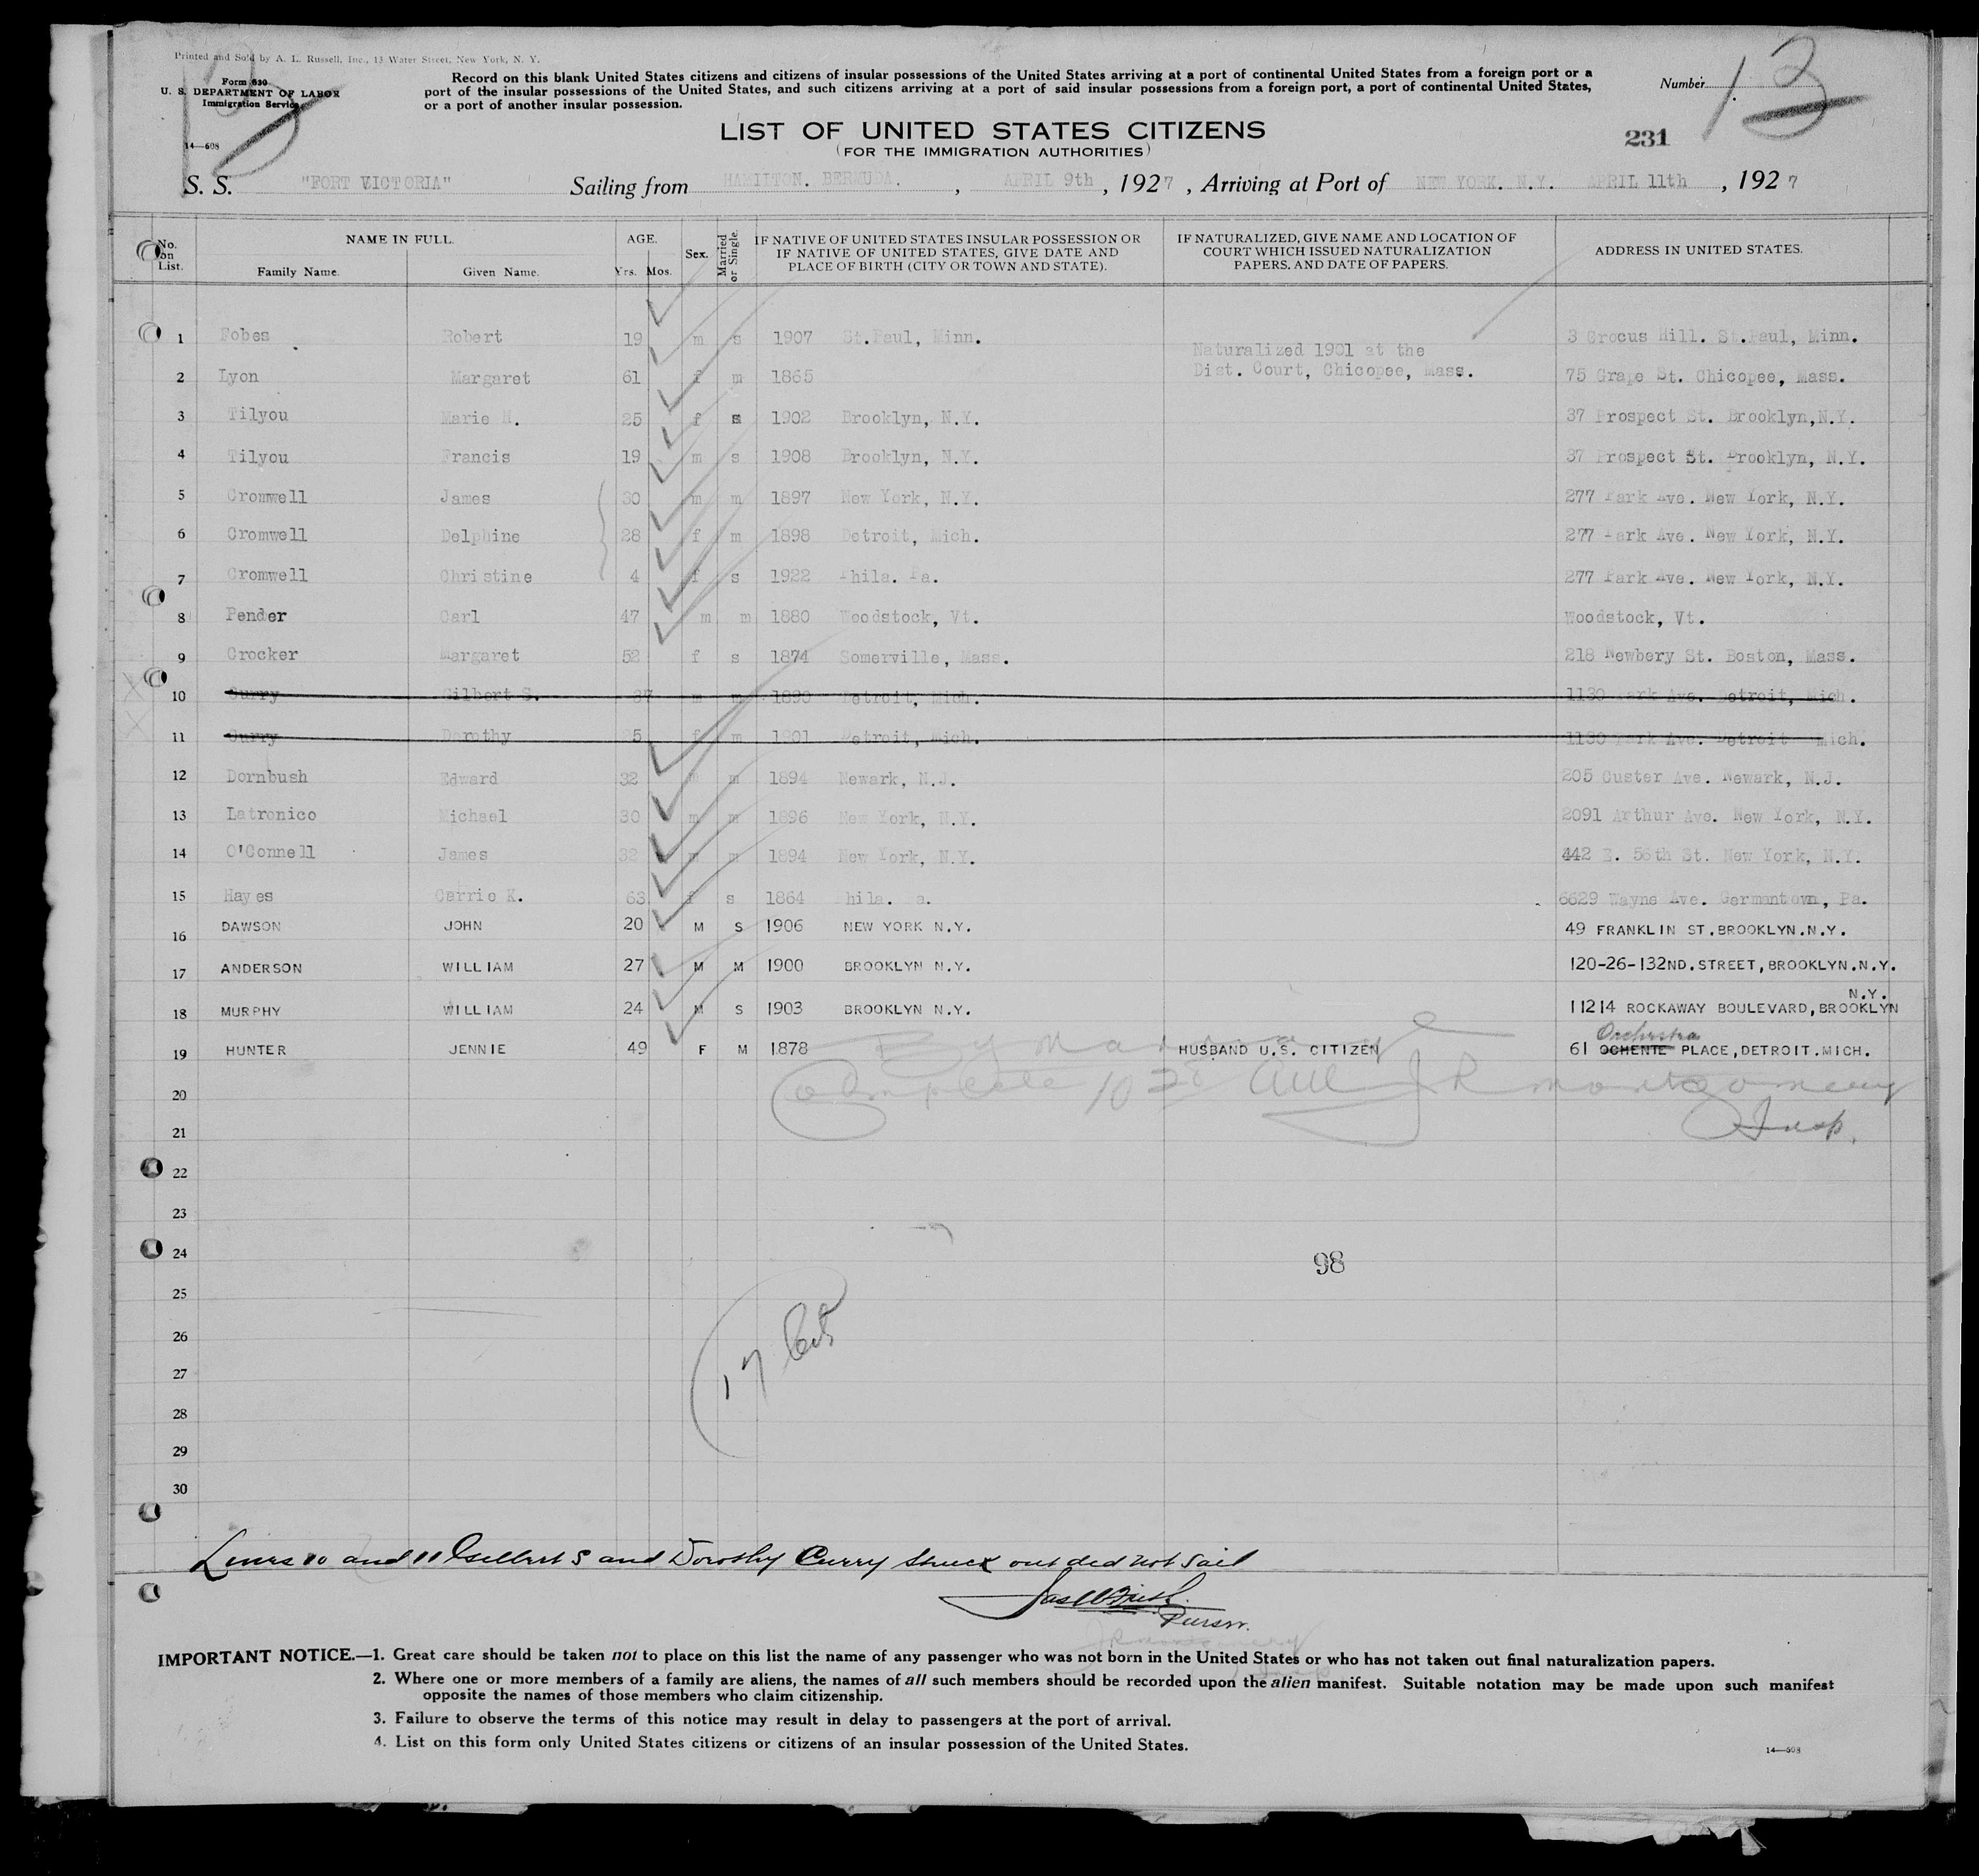 Printed and Sold by A. L. Russell, Inc., 13 Water Street, New York, N. Y.
Form 630
U. S. DEPARTMENT OF LABOR
Immigration Service
14—608
Record on this blank United States citizens and citizens of insular possessions of the United States arriving at a port of continental United States from a foreign port or a
port of the insular possessions of the United States, and such citizens arriving at a port of said insular possessions from a foreign port, a port of continental United States,
or a port of another insular possession.
Number 13
13
LIST OF UNITED STATES CITIZENS
(FOR THE IMMIGRATION AUTHORITIES)
231
S. S. "FORT VICTORIA" Sailing from HAMILTON. BERMUDA. , APRIL 9th , 1927 , Arriving at Port of NEW YORK. N.Y. APRIL 11th , 1927
No. on List. NAME IN FULL. AGE. Sex. Married or Single. IF NATIVE OF UNITED STATES INSULAR POSSESSION OR IF NATIVE OF UNITED STATES, GIVE DATE AND PLACE OF BIRTH (CITY OR TOWN AND STATE). IF NATURALIZED, GIVE NAME AND LOCATION OF COURT WHICH ISSUED NATURALIZATION PAPERS, AND DATE OF PAPERS. ADDRESS IN UNITED STATES.
Family Name. Given Name. Yrs. Mos.
1 Fobes Robert 19 m s 1907 St.Paul, Minn. 3 Crocus Hill. St.Paul, Minn.
2 Lyon Margaret 61 f m 1865 Naturalized 1901 at the Dist. Court, Chicopee, Mass. 75 Grape St. Chicopee, Mass.
3 Tilyou Marie H. 25 f s 1902 Brooklyn, N.Y. 37 Prospect St. Brooklyn,N.Y.
4 Tilyou Francis 19 m s 1908 Brooklyn, N.Y. 37 Prospect St. Brooklyn, N.Y.
5 Cromwell James 30 m m 1897 New York, N.Y. 277 Park Ave. New York, N.Y.
6 Cromwell Delphine 28 f m 1898 Detroit, Mich. 277 Park Ave. New York, N.Y.
7 Cromwell Christine 4 f s 1922 Phila. Pa. 277 Park Ave. New York, N.Y.
8 Pender Carl 47 m m 1880 Woodstock, Vt. Woodstock, Vt.
9 Crocker Margaret 52 f s 1874 Somerville, Mass. 218 Newbery St. Boston, Mass.
10 Curry Gilbert S. 37 m m 1890 Detroit, Mich. 1130 Park Ave. Detroit, Mich.
11 Curry Dorothy 25 f m 1901 Detroit, Mich. 1130 Park Ave. Detroit Mich.
12 Dornbush Edward 32 m m 1894 Newark, N.J. 205 Custer Ave. Newark, N.J.
13 Latronico Michael 30 m m 1896 New York, N.Y. 2091 Arthur Ave. New York, N.Y.
14 O'Connell James 32 m m 1894 New York, N.Y. 442 E. 56th St. New York, N.Y.
15 Hayes Carrie K. 63 f s 1864 Phila. Pa. 6629 Wayne Ave. Germantown, Pa.
16 DAWSON JOHN 20 M S 1906 NEW YORK N.Y. 49 FRANKLIN ST.BROOKLYN.N.Y.
17 ANDERSON WILLIAM 27 M M 1900 BROOKLYN N.Y. 120-26-132ND.STREET,BROOKLYN.N.Y.
18 MURPHY WILLIAM 24 M S 1903 BROOKLYN N.Y. 11214 ROCKAWAY BOULEVARD,BROOKLYN N.Y.
19 HUNTER JENNIE 49 F M 1878 By marriage HUSBAND U.S. CITIZEN 61 OCHENTE Orchestra PLACE,DETROIT.MICH.
20 Complete JR Montgomery
21 Insp.
22
23
24
98
25
26
27 17
28
29
30
Lines 10 and 11 Gilbert S and Dorothy Curry struck out did not sail
Purser.
JR Montgomery
Insp
IMPORTANT NOTICE.—1. Great care should be taken not to place on this list the name of any passenger who was not born in the United States or who has not taken out final naturalization papers.
2. Where one or more members of a family are aliens, the names of all such members should be recorded upon the alien manifest. Suitable notation may be made upon such manifest
opposite the names of those members who claim citizenship.
3. Failure to observe the terms of this notice may result in delay to passengers at the port of arrival.
4. List on this form only United States citizens or citizens of an insular possession of the United States.
14—608